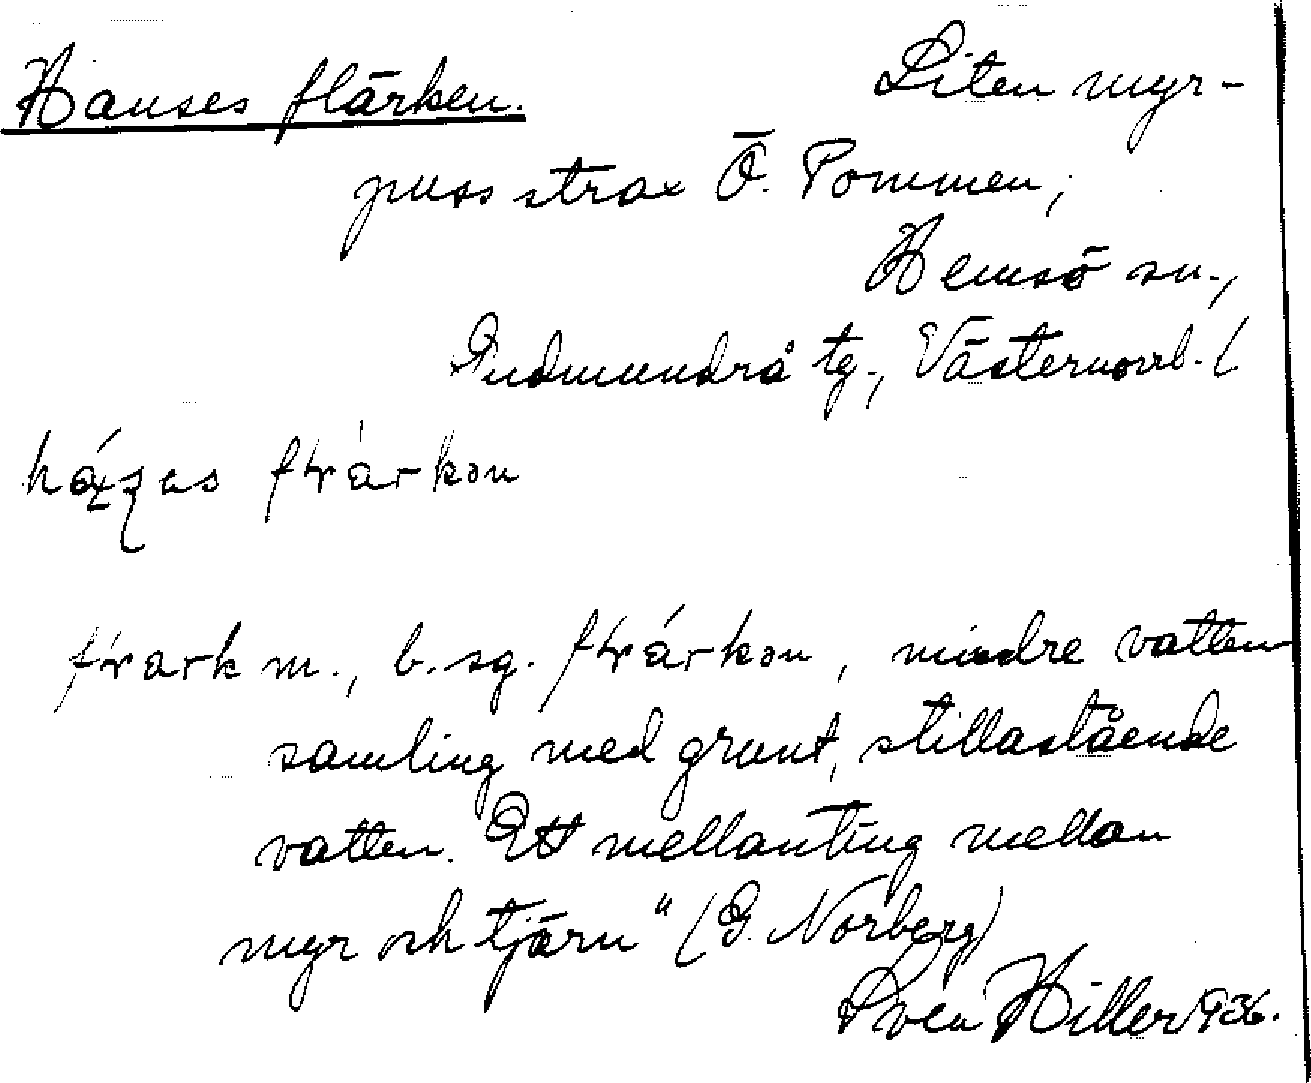 Hanses flärken. Liten myr-
puss strax Ö. Pommen,
Hemsö sn.,
Gudmundrå tg., Västernorrl. l.
flark m., b. sg. , mindre vatten
samling med grunt, stillastående
vatten. Ett mellanting mellan
myr och tjärn" (G. Norberg)
Sven Hiller 1936.